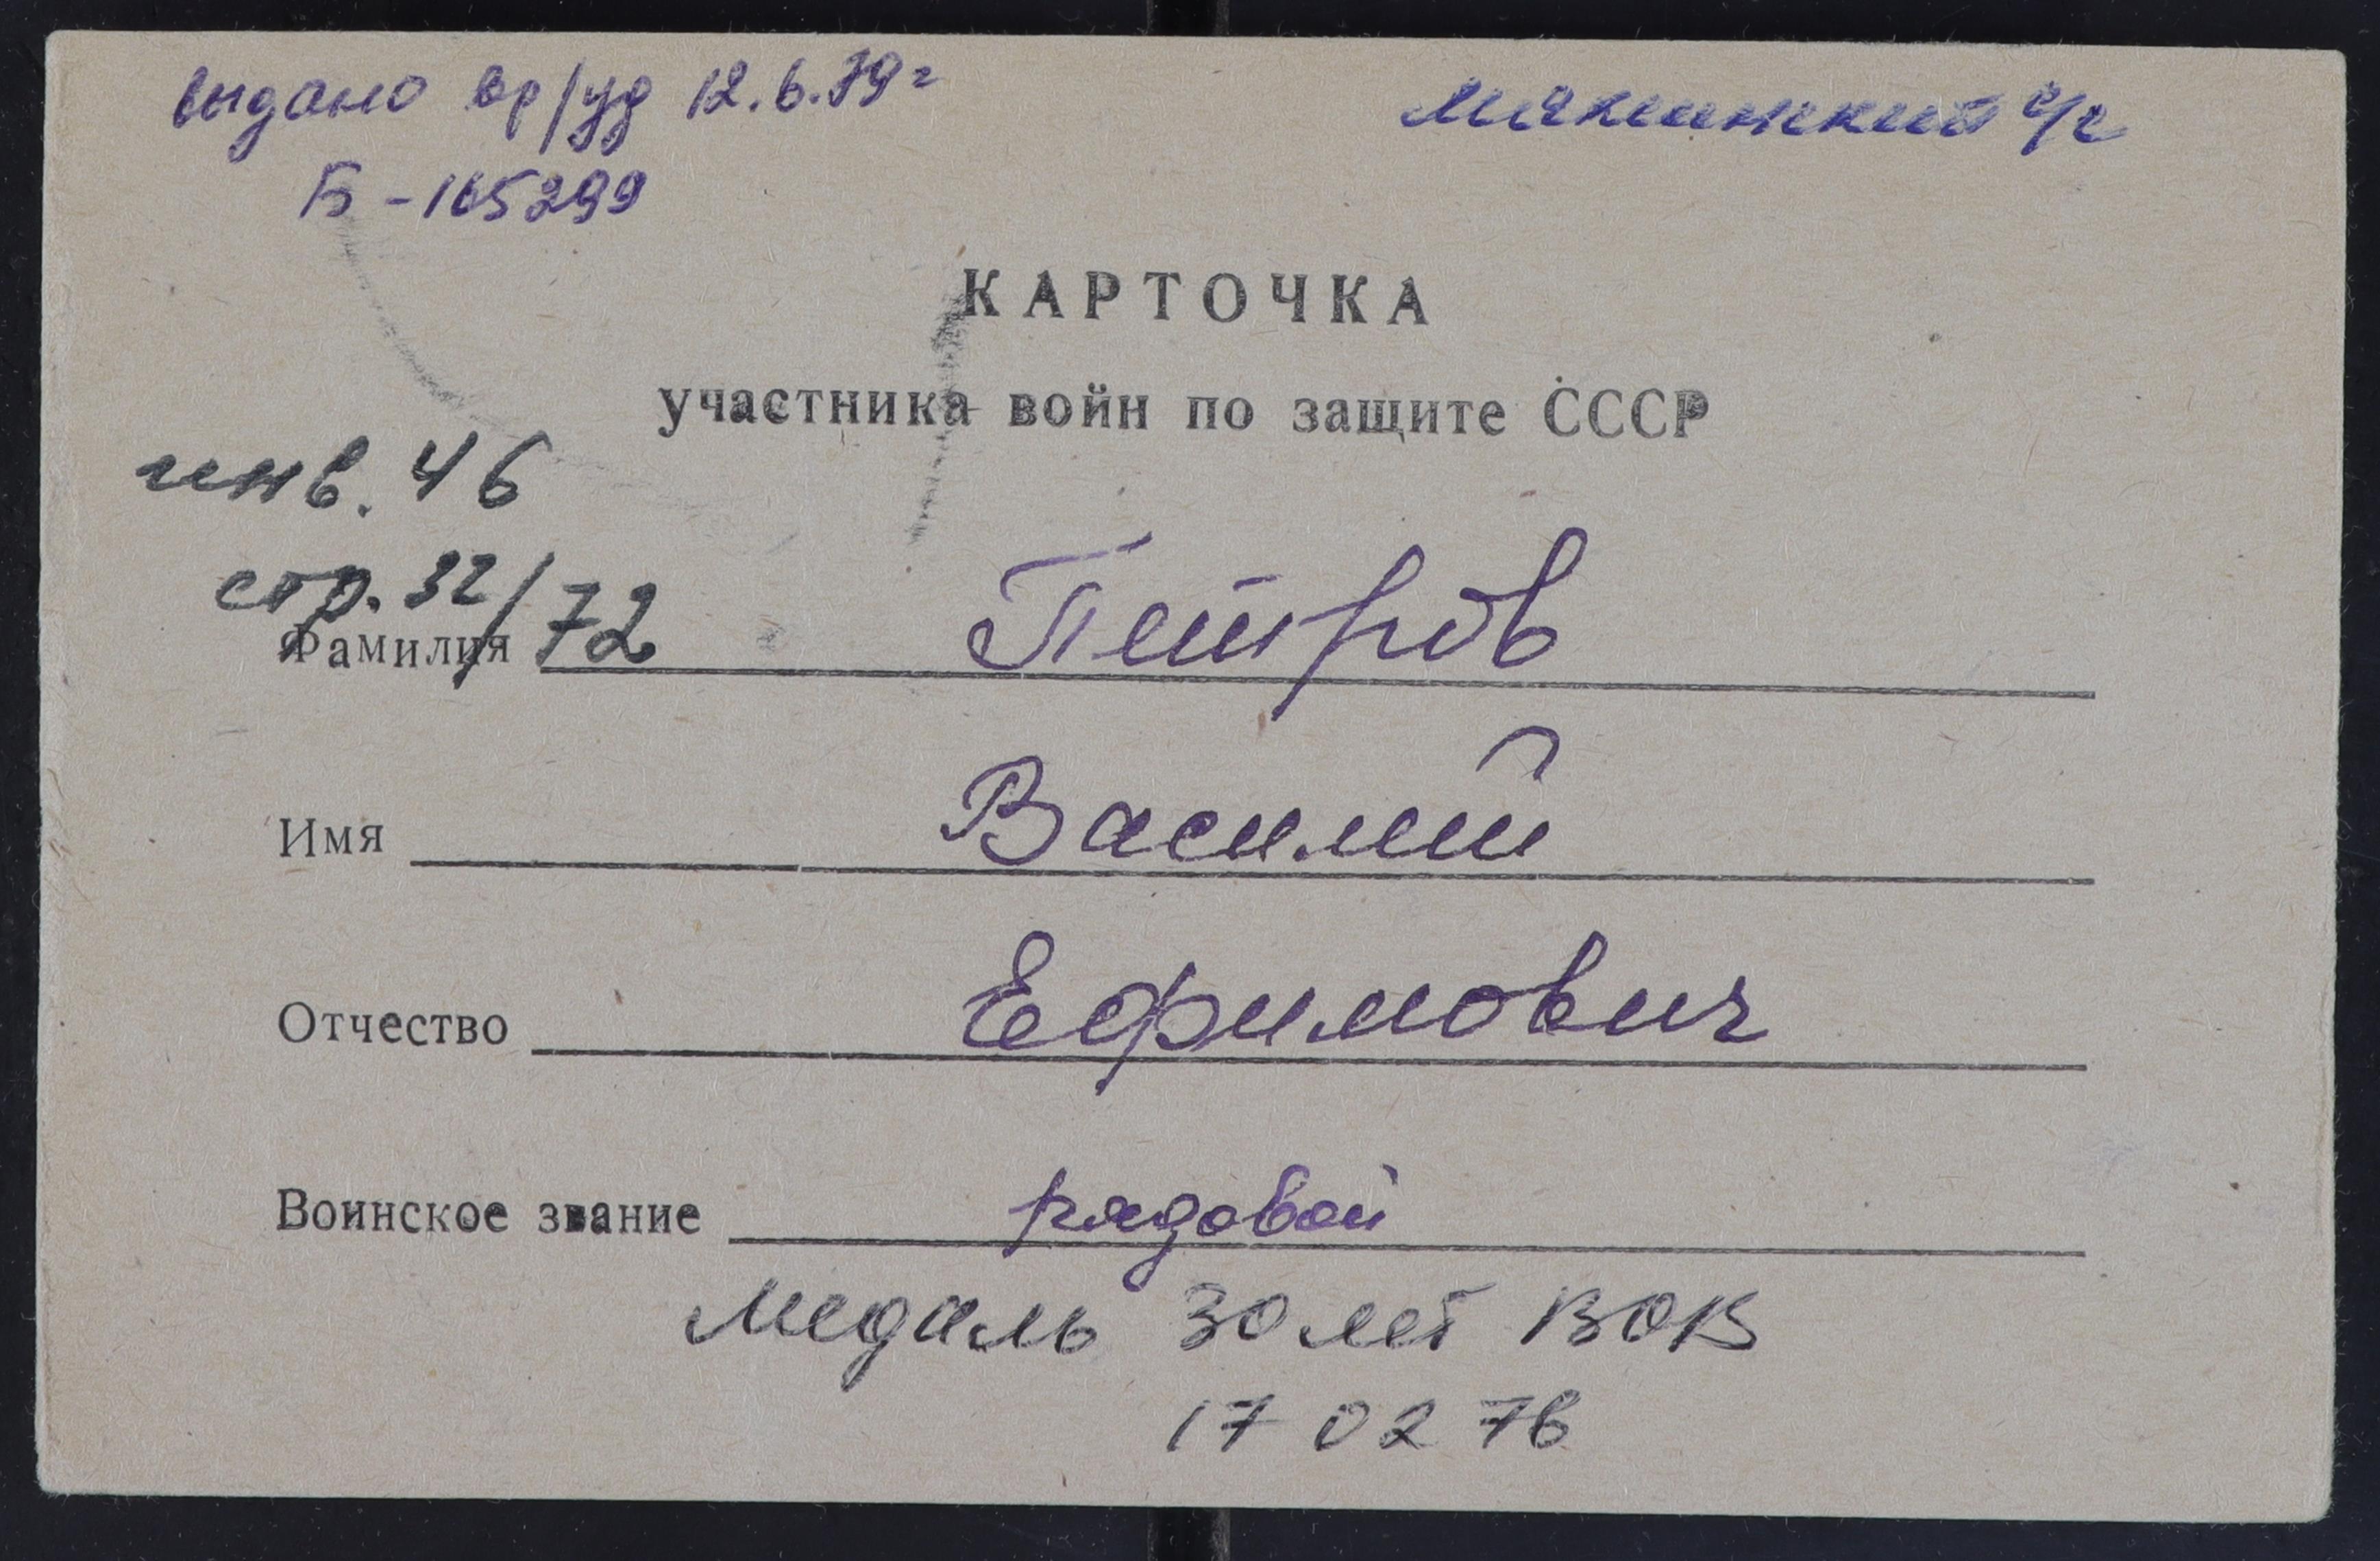 выдано вр/уд 12.6.79г
Б-165299
с/с
КАРТОЧКА
участника войн по защите СССР
инв. 46
стр. 32/72
Фамилия Петров
Имя Василий
Отчество Ефимович
Воинское звание рядовой
Медаль 30 лет ВОВ
17 02 76